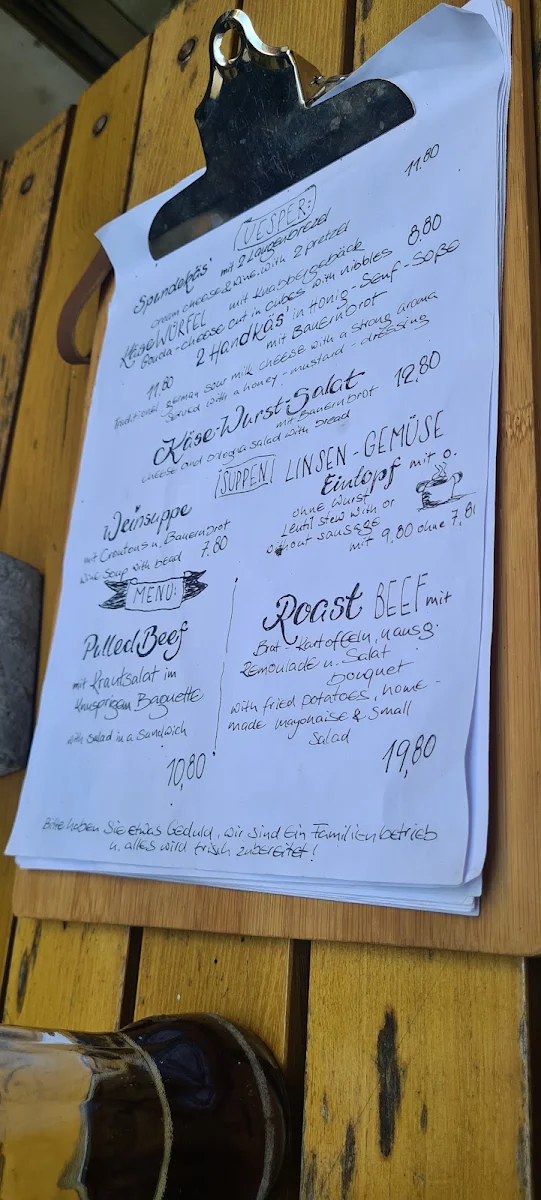 VESPER:
Spundekäs' mit 2 Laugenbrezel 11.80
cream cheese & wine with 2 pretzel
KäseWÜRFEL mit Knabbergebäck 8.80
Gouda-cheese cut in cubes with nibbles
2 HandKäs' in Honig-Senf-Soße
11.80 mit Bauernbrot
Traditional german sour milk cheese with a strong aroma
Served with a honey-mustard-dressing
Käse-Wurst-Salat 12.80
mit Bauernbrot
cheese and bologna salad with bread
SUPPEN
LINSEN-GEMÜSE
Eintopf mit o.
ohne Wurst
Lentil stew with or
without sausage
mit 9,80 ohne 7,8
Weinsuppe
mit Croutons u. Bauernbrot
wine soup with bread 7.80
MENÜ:
Pulled Beef
mit Krautsalat im
knusprigen Baguette
with salad in a sandwich
10,80
Roast BEEF mit
Brat-Kartoffeln, hausg.
Remoulade u. Salat
bouquet
with fried potatoes, home-
made mayonaise & small
Salad
19,80
Bitte haben Sie etwas Geduld, wir sind ein Familienbetrieb
u. alles wird frisch zubereitet!